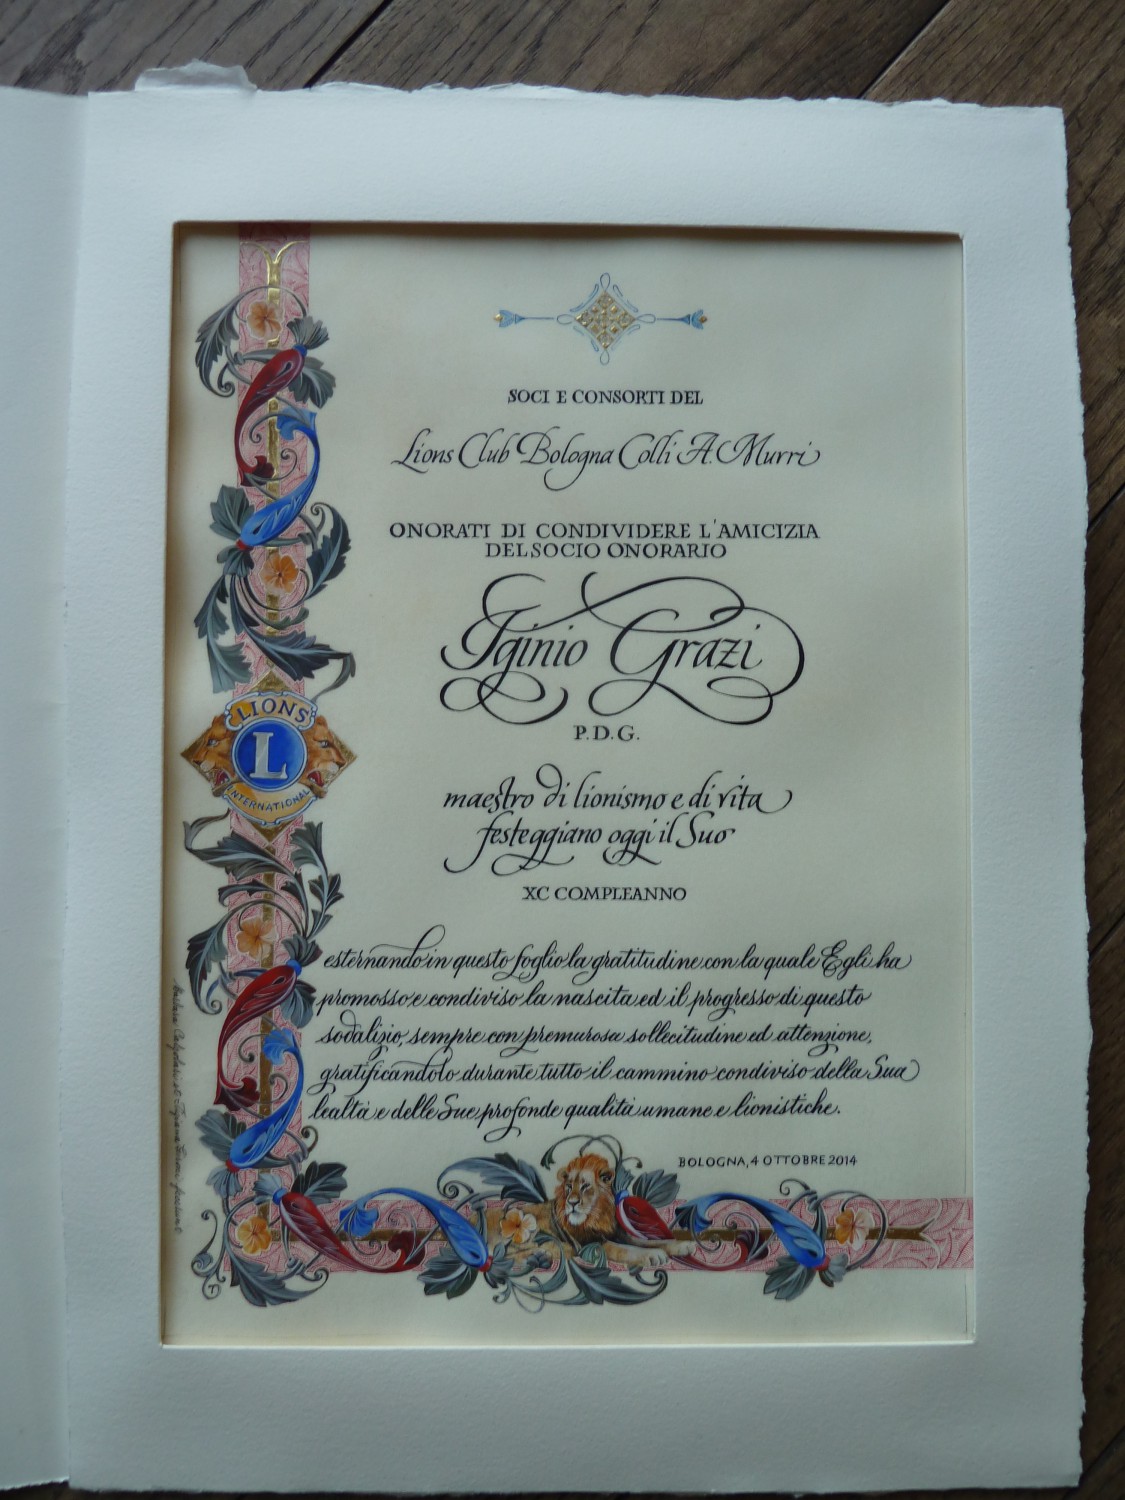 SOCI E CONSORTI DEL
Lions Club Bologna Colli A. Murri
ONORATI DI CONDIVIDERE L'AMICIZIA
DEL SOCIO ONORARIO
Iginio Grazi
P.D.G.
maestro di lionismo e di vita
festeggiano oggi il Suo
XC COMPLEANNO
esternando in questo foglio la gratitudine con la quale Egli ha
promosso e condiviso la nascita ed il progresso di questo
sodalizio, sempre con premurosa sollecitudine ed attenzione,
gratificandolo durante tutto il cammino condiviso della Sua
lealtà e delle Sue profonde qualità umane e lionistiche.
BOLOGNA, 4 OTTOBRE 2014
LIONS
L
INTERNATIONAL